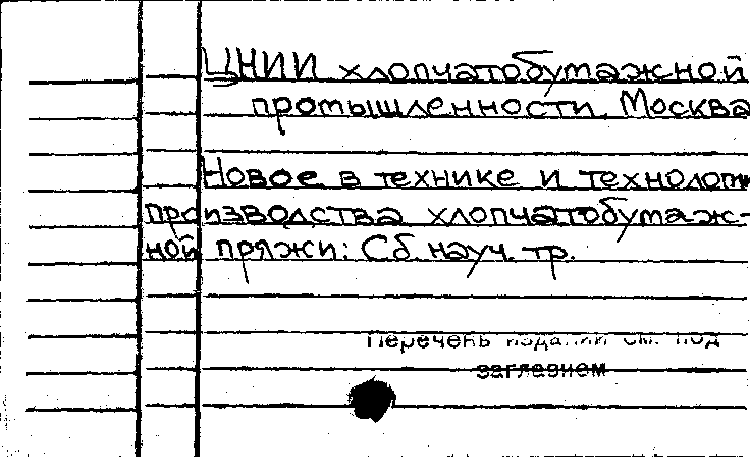 ЦНИИ хлопчатобумажной
промышленности. Москва
Новое в технике и технологи
производства хлопчатобумаж-
ной пряжи: Сб. науч. тр.
Перечень изданий см. под
заглавием